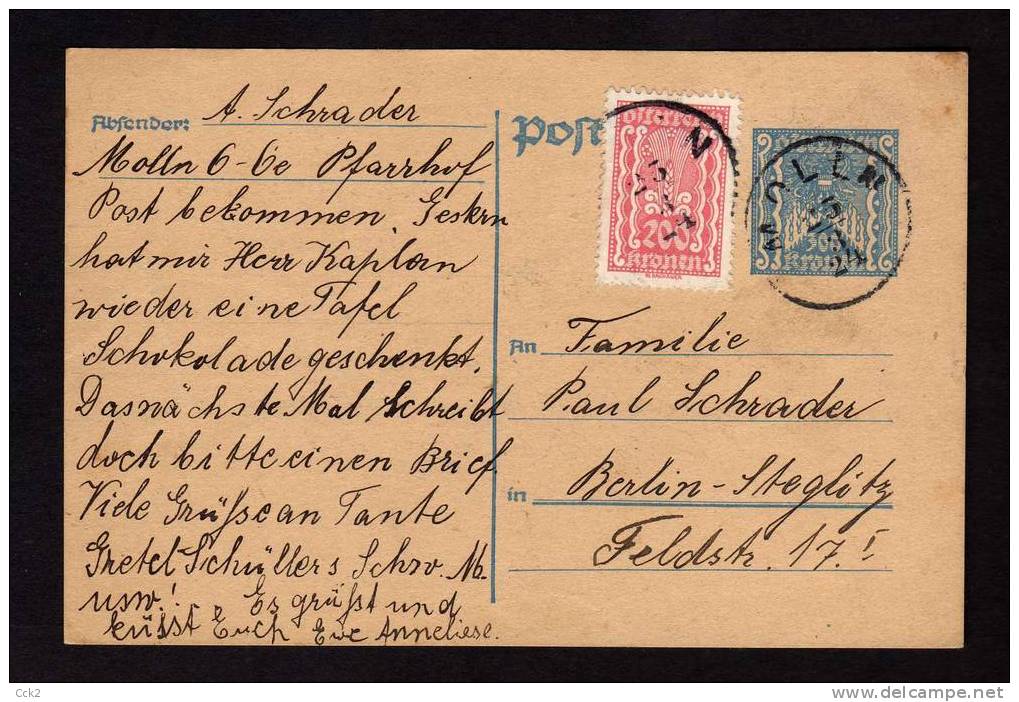 Absender: A. Schrader
Molln 6-6e Pfarrhof
Post bekommen. Gestern
hat mir Herr Kaplan
wieder eine Tafel
Schokolade geschenkt.
Das nächste Mal schreibt
doch bitte einen Brief.
Viele Grüsse an Tante
Gretel Schüllers Schw. M.
usw.! Es grüsst und
küsst Euch Eure Anneliese.
Post
Österreich
200
Kronen
N
500
Kronen
MOLLN
24
An Familie
Paul Schrader
in Berlin-Steglitz
Feldstr. 17. I
Cck2
www.delcampe.net